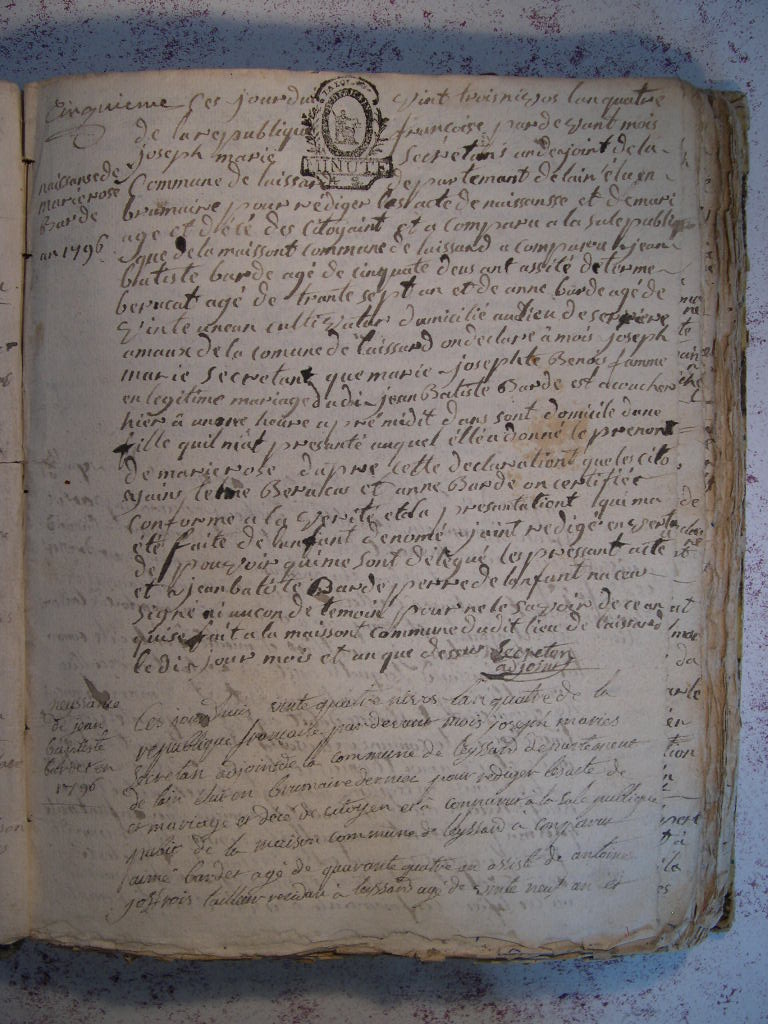 Cinquieme Ces jourdui vint trois nivos lan quatre
de la republique francoise par devant mois
joseph marie Secrétan andeajoint de la
LA LOI
MINUTE
naissanse de
marie rose
Barde
an 1796
Commune de laissard departemant de lain élu en
brumaire pour rédiger les acté de naissensse et de mari
age et d'écé des citoyaint et a comparu a la sale publi
que de la maissont commune de laissard a comparu jean
batiste barde agé de cinquate deus ant assité determe
berucat agé de trante sept an et de anne barde agé de
vinte un an cultivatur domicilié au lieu de serriere
amaux de la comune de laissard on declare à mois joseph
marie Secretant que marie josephte Benoi famme
en legitime mariage dudi jean Batiste Barde est acouchée
hier à unne heure aprémidit dans sont domicile dune
fille quil m'at presanté auquel élléa donné le prenont
de marie rose dapre cette declarationt que les cito
yains Berucas et anne Barde on certifiée
conforme a la verité et la presantationt qui ma
été faite de lanfant denomé jaint redigé en vertu
de pouvoir qui me sont délégué les pressant acte
et jean batiste Barde perre de lanfant na ceu
signé ni aucon de temoin pour ne le savoir de ce an
quise fait a la maissont commune dudit lieu de laissard
le di jour mois et an que dessur Secretan
adjoint
neussance
de jean
baptiste
bardet en
1796
Ces jourdhuis vinte quatre nivos lan quatre de la
republique francaise par devant mois joseph maries
secretan adjoint de la commune de leyssard departement
de lain élut en brumaire dernier pour rediger les acte de
et mariage et décé de citoyen et a comparut à la sale publique
de la maison commune de leyssard a comparut
jaimé bardet agé de quarante quatre an assisté de antoine
tailleur residan à leyssard agé de vinte neuf an et